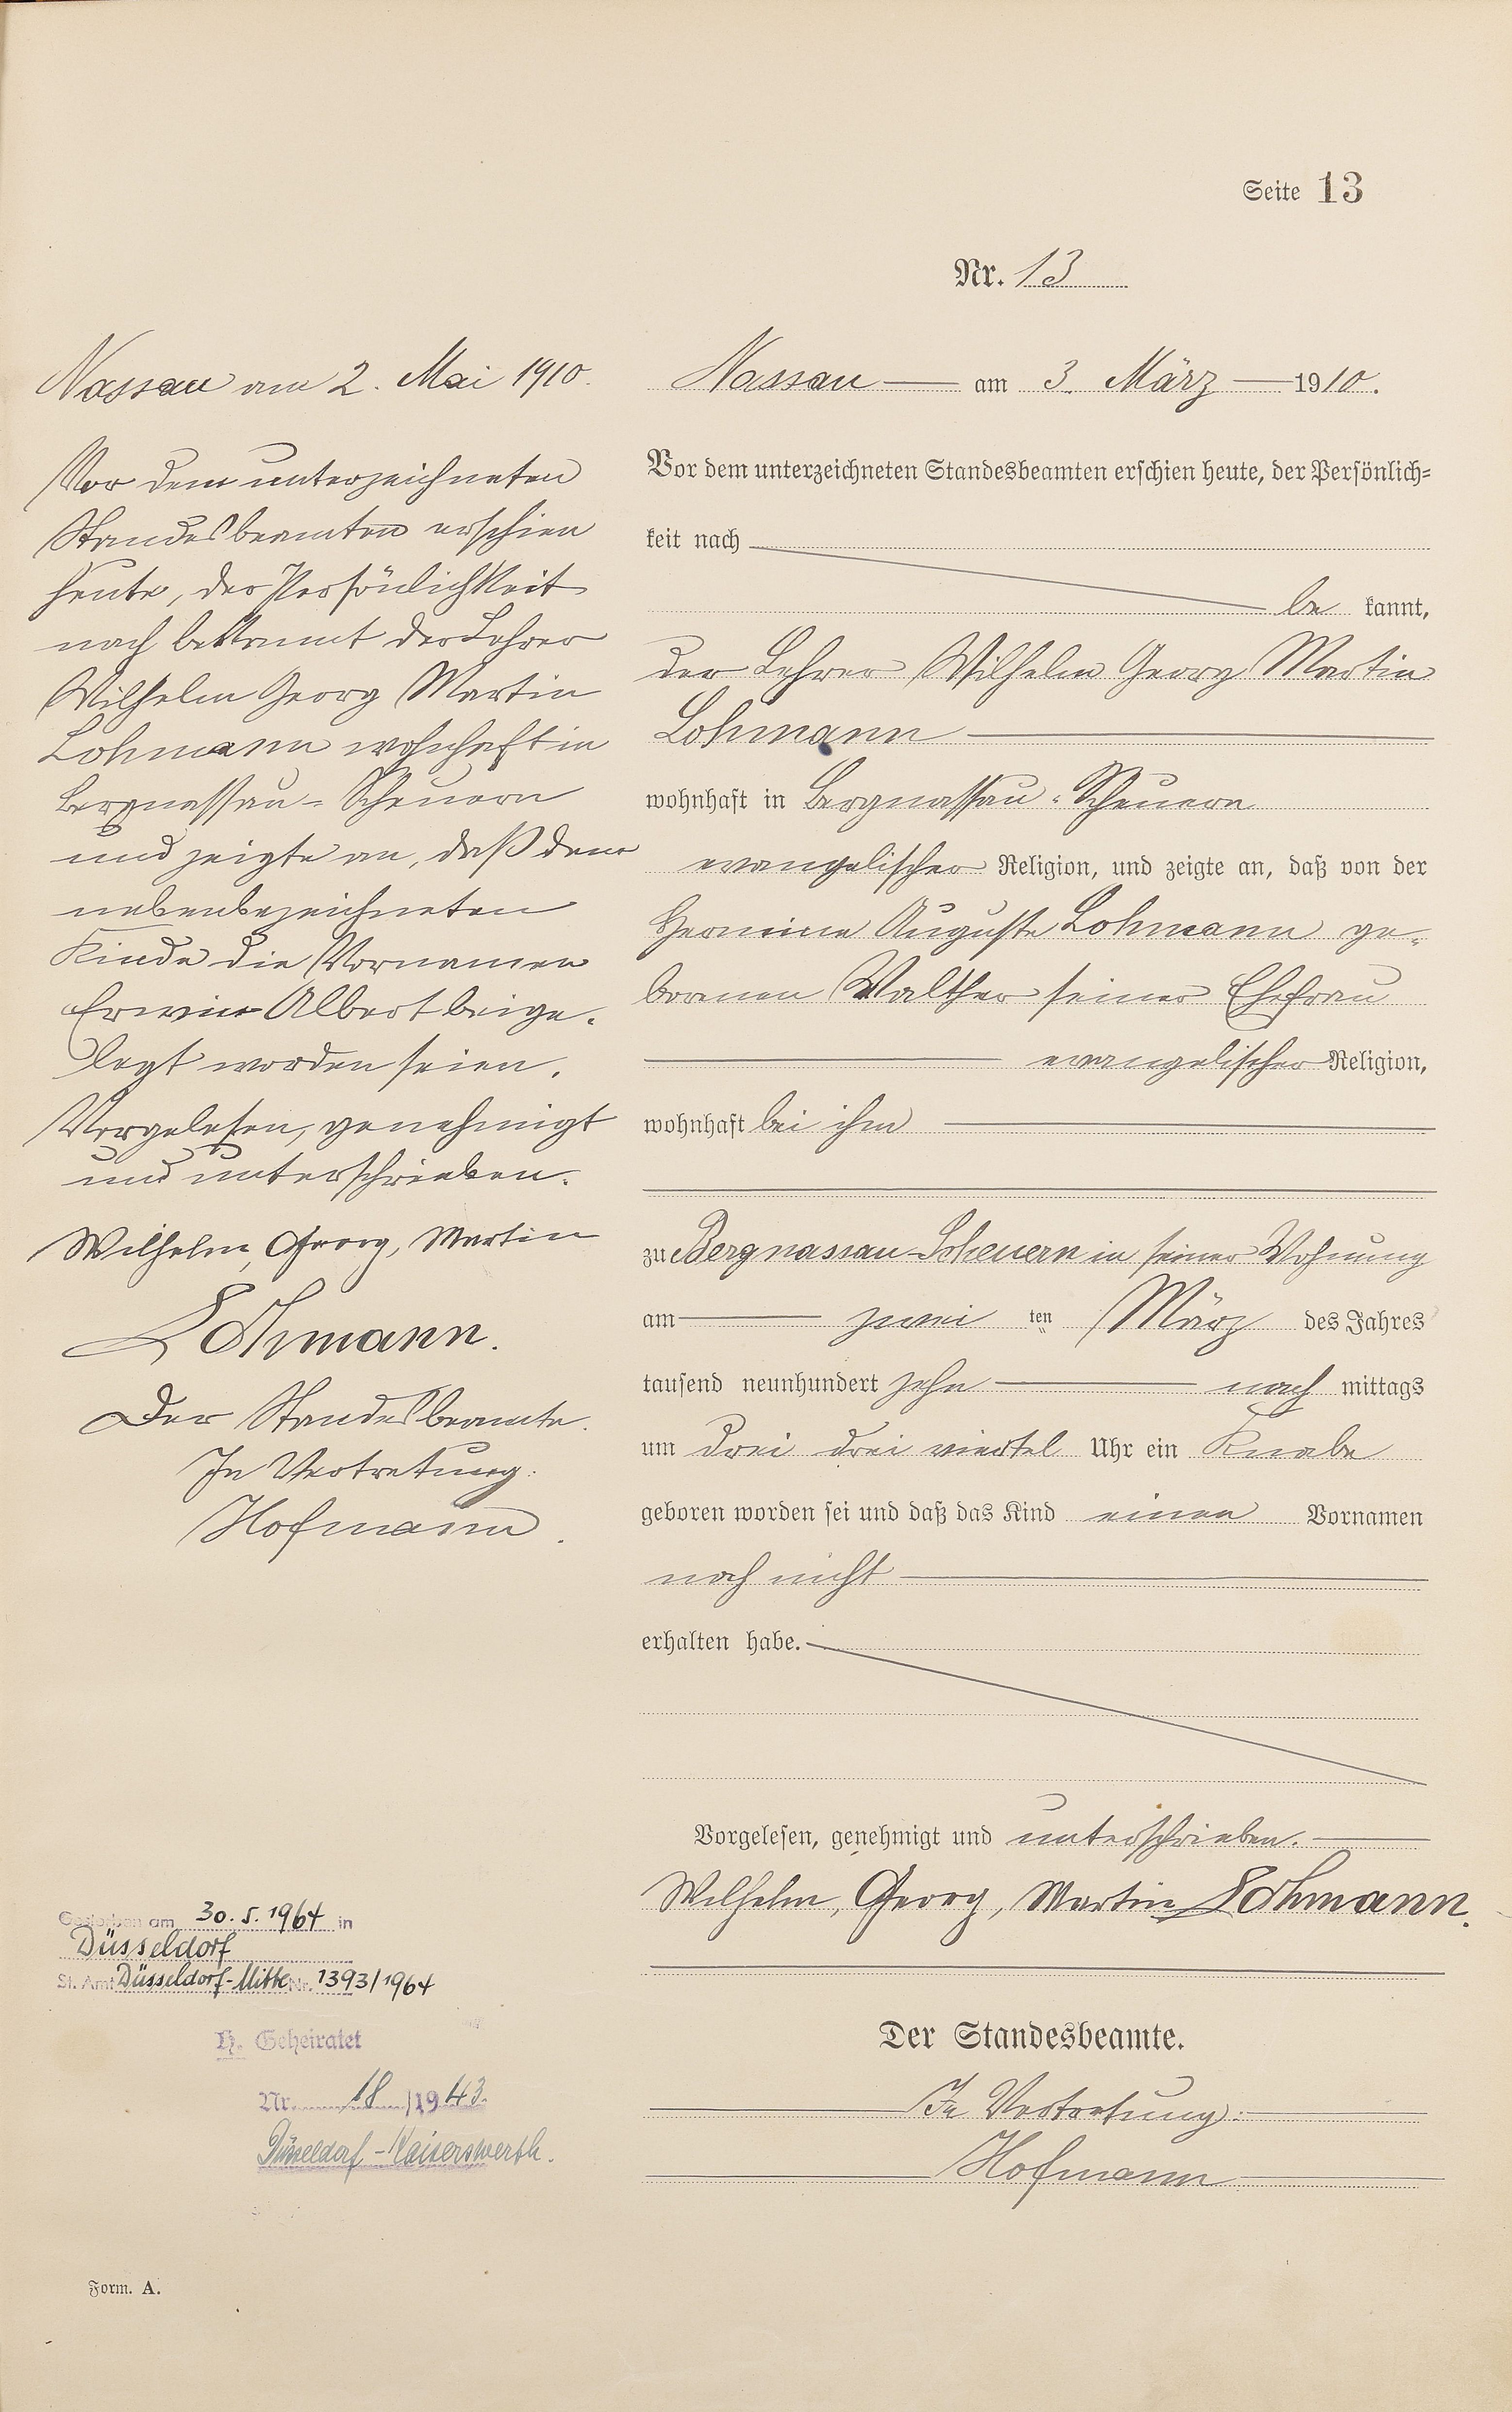 Seite 13
Nr. 13
Nassau am 3. März 1910.
Vor dem unterzeichneten Standesbeamten erschien heute, der Persönlich=
keit nach
be kannt,
der Lehrer Wilhelm Georg Martin
Lohmann
wohnhaft in Bergnassau-Scheuern
evangelischer Religion, und zeigte an, daß von der
Hermine Auguste Lohmann ge-
borenen Walther seiner Ehefrau
evangelischer Religion,
wohnhaft bei ihm
zu Bergnassau-Scheuern in seiner Wohnung
am zwei ten März des Jahres
tausend neunhundert zehn nach mittags
um drei drei viertel Uhr ein Knabe
geboren worden sei und daß das Kind einen Vornamen
noch nicht
erhalten habe.
Vorgelesen, genehmigt und unterschrieben.
Wilhelm, Georg, Martin Lohmann.
Der Standesbeamte.
In Vertretung:
Hofmann
Nassau am 2. Mai 1910.
Vor dem unterzeichneten
Standesbeamten erschien
heute, der Persönlichkeit
nach bekannt der Lehrer
Wilhelm Georg Martin
Lohmann wohnhaft in
Bergnassau-Scheuern
und zeigte an, daß dem
nebenbezeichneten
Kinde die Vornamen
Erwin Albert beige-
legt worden seien.
Vorgelesen, genehmigt
und unterschrieben.
Wilhelm, Georg, Martin
Lohmann.
Der Standesbeamte.
In Vertretung:
Hofmann.
Gestorben am 30.5.1964 in
Düsseldorf
St. Amt Düsseldorf-Mitte Nr. 1393/1964
H. Geheiratet
Nr. 18/1943.
Düsseldorf-Kaiserswerth.
Form. A.